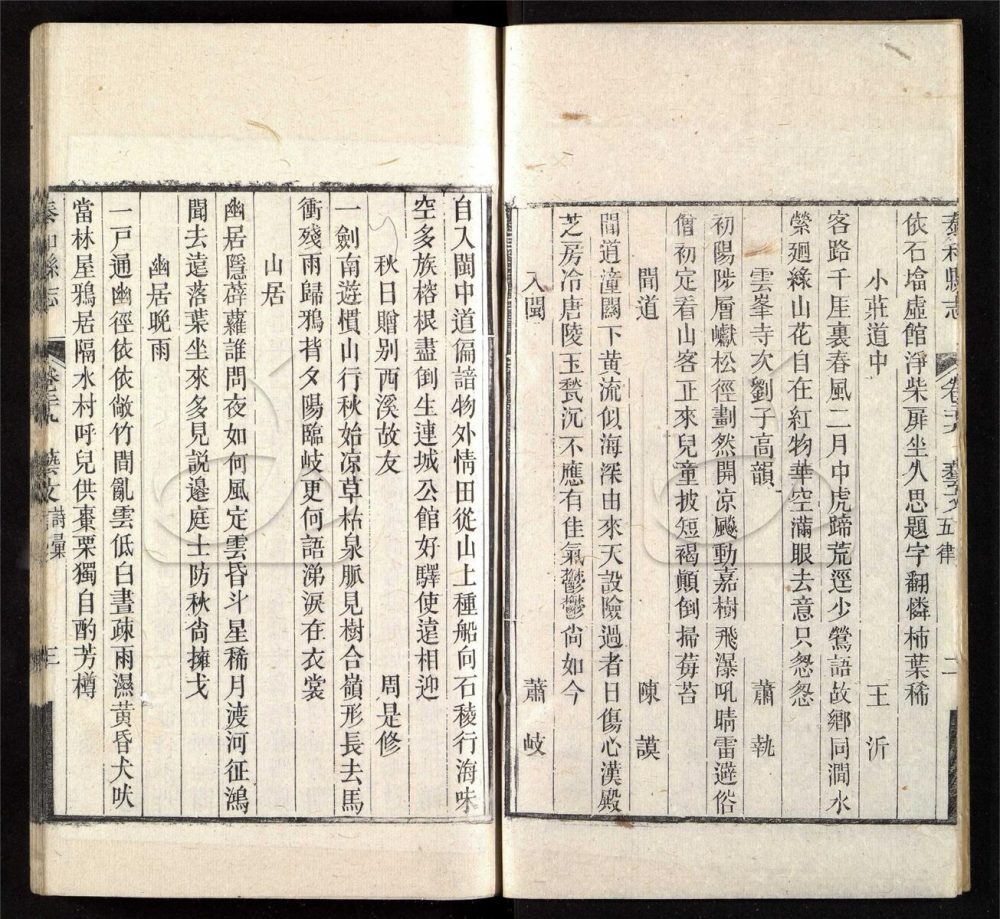 泰和縣志 卷廿九 藝文五律 二
依石壇虛館淨柴扉坐久思題字翻憐柿葉稀
小莊道中 王沂
客路千厓裏春風二月中虎蹄荒逕少鶯語故鄉同澗水
縈廻綠山花自在紅物華空滿眼去意只怱怱
雲峯寺次劉子高韻 蕭執
初陽陟層巘松徑劃然開凉飈動嘉樹飛瀑吼晴雷避俗
僧初定看山客正來兒童披短褐顛倒掃莓苔
聞道 陳謨
聞道潼關下黄流似海深由來天設險過者日傷心漢殿
芝房冷唐陵玉甃沉不應有佳氣鬱鬱尙如今
入閩 蕭岐
自入閩中道偏諳物外情田從山上種船向石稜行海味
空多族榕根盡倒生連城公館好驛使遠相迎
秋日贈别西溪故友 周是修
一劍南遊慣山行秋始凉草枯泉脈見樹合嶺形長去馬
衝殘雨歸鴉背夕陽臨岐更何語涕淚在衣裳
山居
幽居隱薜蘿誰問夜如何風定雲昏斗星稀月渡河征鴻
聞去遠落葉坐來多見説邊庭士防秋尙擁戈
幽居晚雨
一戸通幽徑依依敞竹間亂雲低白晝疎雨濕黄昏犬吠
當林屋鴉居隔水村呼兒供棗栗獨自酌芳樽
泰和縣志 卷廿九 藝文 詩彙 三